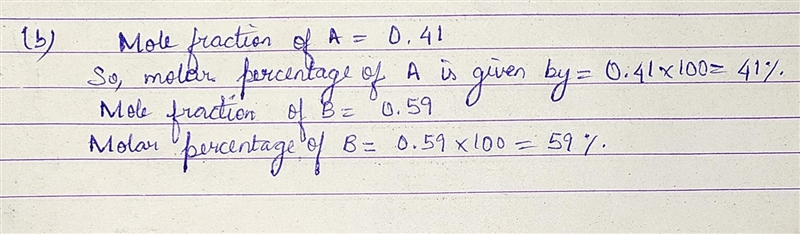 (b) Mole fraction of A = 0.41
So, molar percentage of A is given by = 0.41×100= 41%.
Mole fraction of B= 0.59
Molar percentage of B= 0.59×100 = 59%.